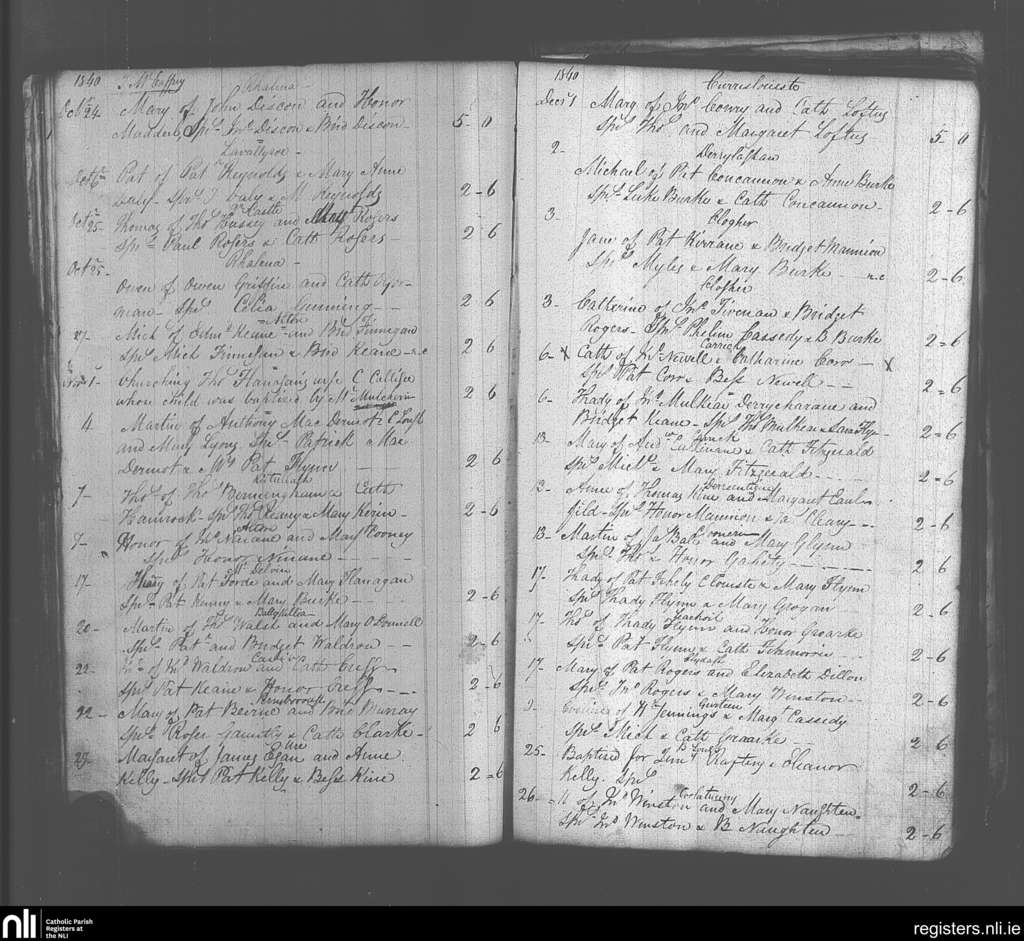 1840
Rhalena
Octr 24 Mary of John Discon and Honor
Madden, Spr Jno Discon & Brid Discon 5 - 0
Lavallyroe
Octr Pat of Pat Reynolds & Mary Anne
Daly Spr J Daly & M Reynolds 2 - 6
Castle
Octr 25 Thomas of Thos Hussey and Mary Rogers
Spr Paul Rogers & Cath Rogers 2 6
Rhalena
Octr 25
Owen of Owen Griffin and Cath
man Spr Celia Cunning 2 6
27 Mich of Edmd Keane and Brid Finnegan
Spr Mich Finnegan & Brid Keane 2 6
Novr 1 Churching Thos Flanagans wife C
whose child was baptised by Mr Mulchern 2 6
4 Martin of Anthony Mac Dermott
and Mary Lyons Spr Patrick Mac
Dermot & Mrs Pat Flynn 2 6
7 Thos of Thos Bermingham & Cath
Hanrook Spr Thos Keany & Mary Kerin 2 - 6
Aiton
7 Honor of Jno Ninane and Mary Rooney
Spr Honor Ninane
17 Thady of Pat Forde and Mary Flanagan
Spr Pat Kenny & Mary Burke 2 - 6
Ballykilla
20 Martin of Thos Walsh and Mary O'Donnell
Spr Patt and Bridget Waldron 2 - 6
22 of Waldron and Cath
Spr Pat Keane & Honor 2 - 6
22 Mary of Pat Beirne and Brid Murray
Spr Roger & Cath Clarke 2 6
29 Margaret of James Egan and Anne
Kelly Spr Pat Kelly & Bess Kine 2 = 6
1840
Decr 1 Mary of Jno Conry and Cath Loftus
Spr Thos and Margaret Loftus 5 - 0
2
Michael of Pat Concannon & Anne Burke
Spr Luke Burke & Cath Concannon 2 - 6
Clogher
3
Jane of Pat Kirrane & Bridget Mannion
Spr Myles & Mary Burke 2 - 6
3 Catherine of Jno Tivenan & Bridget
Rogers Spr Phelim Cassedy & B Burke 2 = 6
Carrick
6 x Cath of Jno Newell & Catharine Corr x
Spr Pat Corr & Bess Newell 2 = 6
6 Thady of Jno Mulkin and
Bridget Keane Spr Thos Mulkin & Sara 2 = 6
13 Mary of Andw Cullinane & Cath Fitzgerald
Spr Michl & Mary Fitzgerald 2 = 6
12 Anne of Thomas Kine and Margaret
field Spr Honor Mannion & Ja Cleary 2 - 6
13 Martin of Ja and Mary Glynn
Spr Thos & Honor Gahity 2 6
17 Thady of Pat & Mary Flynn
Spr Thady Flynn & Mary Grogan 2 - 6
17 Thos of Thady Flynn and Honor Groarke
Spr Pat Flynn & Cath Fitzmorris 2 - 6
17 Mary of Pat Rogers and Elizabeth Dillon
Spr Jno Rogers & Mary Winston 2 - 6
of Wm Jennings & Margt Cassedy
Spr Mich & Cath Groarke 2 6
25 Baptised for Raftery & Eleanor
Kelly. Spr 2 - 6
26 of Jno Winston and Mary Naughten
Spr Jno Winston & B Naughten 2 - 6
nli
Catholic Parish
Registers at
the NLI
registers.nli.ie